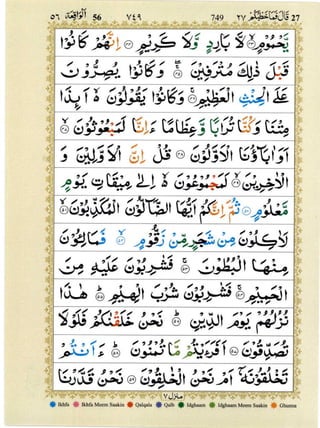 اَلْوَاقِعَة ٥٦ 56 ٧٤٩ 749 قَالَ فَمَا خَطْبُكُمْ ٢٧ 27
يَّحْمُوْمٍ ۙ﴿۴۳﴾ لَّا بَارِدٍ وَّلَا كَرِيْمٍ ﴿۴۴﴾ اِنَّهُمْ كَانُوْا
قَبْلَ ذٰلِكَ مُتْرَفِيْنَ ۚ﴿۴۵﴾ وَكَانُوْا يُصِرُّوْنَ
عَلَى الْحِنْثِ الْعَظِيْمِ ۚ﴿۴۶﴾ وَكَانُوْا يَقُوْلُوْنَ ۙ اَىِٕذَا
مِتْنَا وَكُنَّا تُرَابًا وَّعِظَامًا ءَاِنَّا لَمَبْعُوْثُوْنَ ۙ﴿۴۷﴾
اَوَاٰبَآؤُنَا الْاَوَّلُوْنَ ﴿۴۸﴾ قُلْ اِنَّ الْاَوَّلِيْنَ وَ
الْاٰخِرِيْنَ ۙ﴿۴۹﴾ لَمَجْمُوْعُوْنَ ۙ اِلٰى مِيْقَاتِ يَوْمٍ
مَّعْلُوْمٍ ﴿۵۰﴾ ثُمَّ اِنَّكُمْ اَيُّهَا الضَّآلُّوْنَ الْمُكَذِّبُوْنَ ۙ﴿۵۱﴾
لَاٰكِلُوْنَ مِنْ شَجَرٍ مِّنْ زَقُّوْمٍ ۙ﴿۵۲﴾ فَمَالِـُٔوْنَ
مِنْهَا الْبُطُوْنَ ۚ﴿۵۳﴾ فَشٰرِبُوْنَ عَلَيْهِ مِنَ
الْحَمِيْمِ ۚ﴿۵۴﴾ فَشٰرِبُوْنَ شُرْبَ الْهِيْمِ ؕ﴿۵۵﴾ هٰذَا
نُزُلُهُمْ يَوْمَ الدِّيْنِ ؕ﴿۵۶﴾ نَحْنُ خَلَقْنٰكُمْ فَلَوْلَا
تُصَدِّقُوْنَ ﴿۵۷﴾ اَفَرَءَيْتُمْ مَّا تُمْنُوْنَ ؕ﴿۵۸﴾ ءَاَنْتُمْ
تَخْلُقُوْنَهٗۤ اَمْ نَحْنُ الْخٰلِقُوْنَ ﴿۵۹﴾ نَحْنُ قَدَّرْنَا
منزل ٧
Ikhfa Ikhfa Meem Saakin Qalqala Qalb Idghaam Idghaam Meem Saakin Ghunna